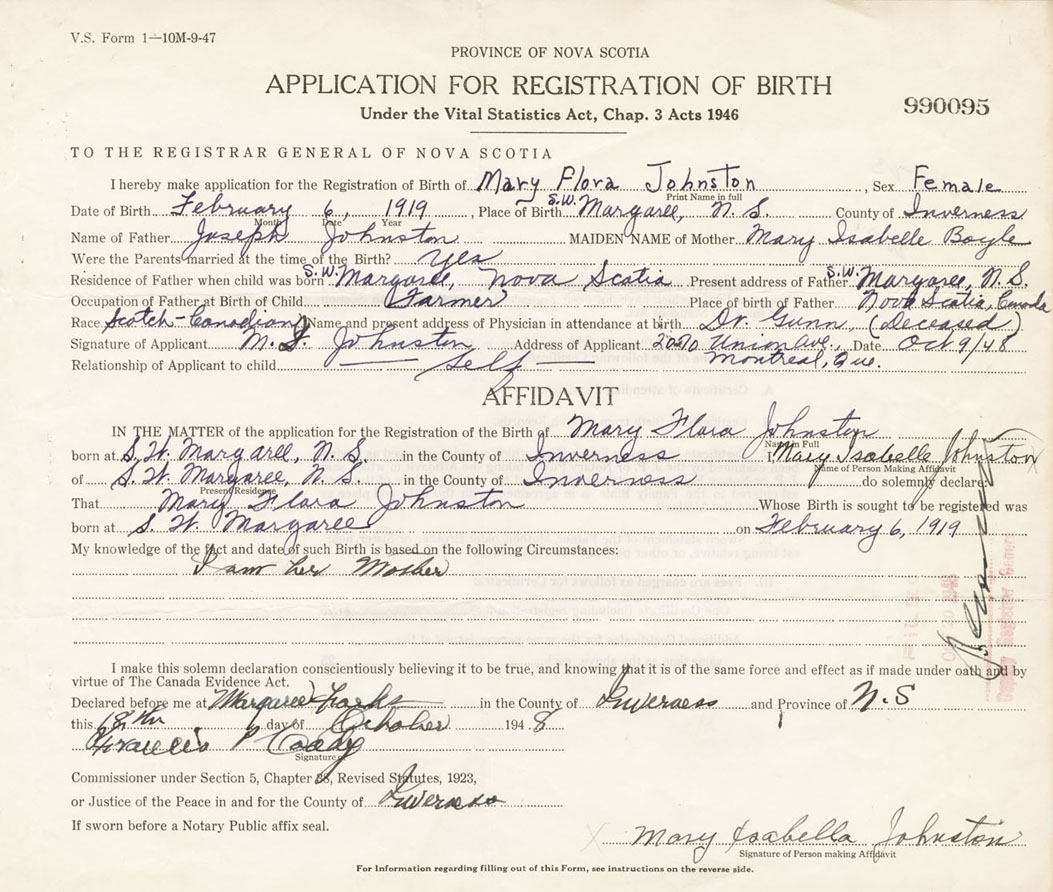 V.S. Form 1—10M-9-47
PROVINCE OF NOVA SCOTIA
APPLICATION FOR REGISTRATION OF BIRTH
990095
Under the Vital Statistics Act, Chap. 3 Acts 1946
TO THE REGISTRAR GENERAL OF NOVA SCOTIA
I hereby make application for the Registration of Birth of Mary Flora Johnston, Sex Female
Print Name in full
Date of Birth February 6, 1919, Place of Birth S.W. Margaree, N. S. County of Inverness
Month Date Year
Name of Father Joseph Johnston MAIDEN NAME of Mother Mary Isabelle Boyle
Were the Parents married at the time of the Birth? Yes
Residence of Father when child was born S.W. Margaree, Nova Scotia Present address of Father S.W. Margaree, N. S.
Occupation of Father at Birth of Child Farmer Place of birth of Father Nova Scotia, Canada
Race Scotch-Canadian Name and present address of Physician in attendance at birth Dr. Gunn, (Deceased)
Signature of Applicant M. F. Johnston Address of Applicant 2070 Union Ave., Date Oct 9/48
Relationship of Applicant to child Self Montreal, Que.
AFFIDAVIT
IN THE MATTER of the application for the Registration of the Birth of Mary Flora Johnston
Name in Full
born at S. W. Margaree, N. S. in the County of Inverness I Mary Isabelle Johnston
Name of Person Making Affidavit
of S. W. Margaree, N. S. in the County of Inverness do solemnly declare:
Present Residence
That Mary Flora Johnston Whose Birth is sought to be registered was
born at S. W. Margaree on February 6, 1919
My knowledge of the fact and date of such Birth is based on the following Circumstances:
I am her Mother
I make this solemn declaration conscientiously believing it to be true, and knowing that it is of the same force and effect as if made under oath and by
virtue of The Canada Evidence Act.
Declared before me at Margaree Forks in the County of Inverness and Province of N. S
this 18th day of October 1948
Francis P Coady
Signature
Commissioner under Section 5, Chapter 38, Revised Statutes, 1923,
or Justice of the Peace in and for the County of Inverness
If sworn before a Notary Public affix seal.
X Mary Isabella Johnston
Signature of Person making Affidavit
For Information regarding filling out of this Form, see instructions on the reverse side.